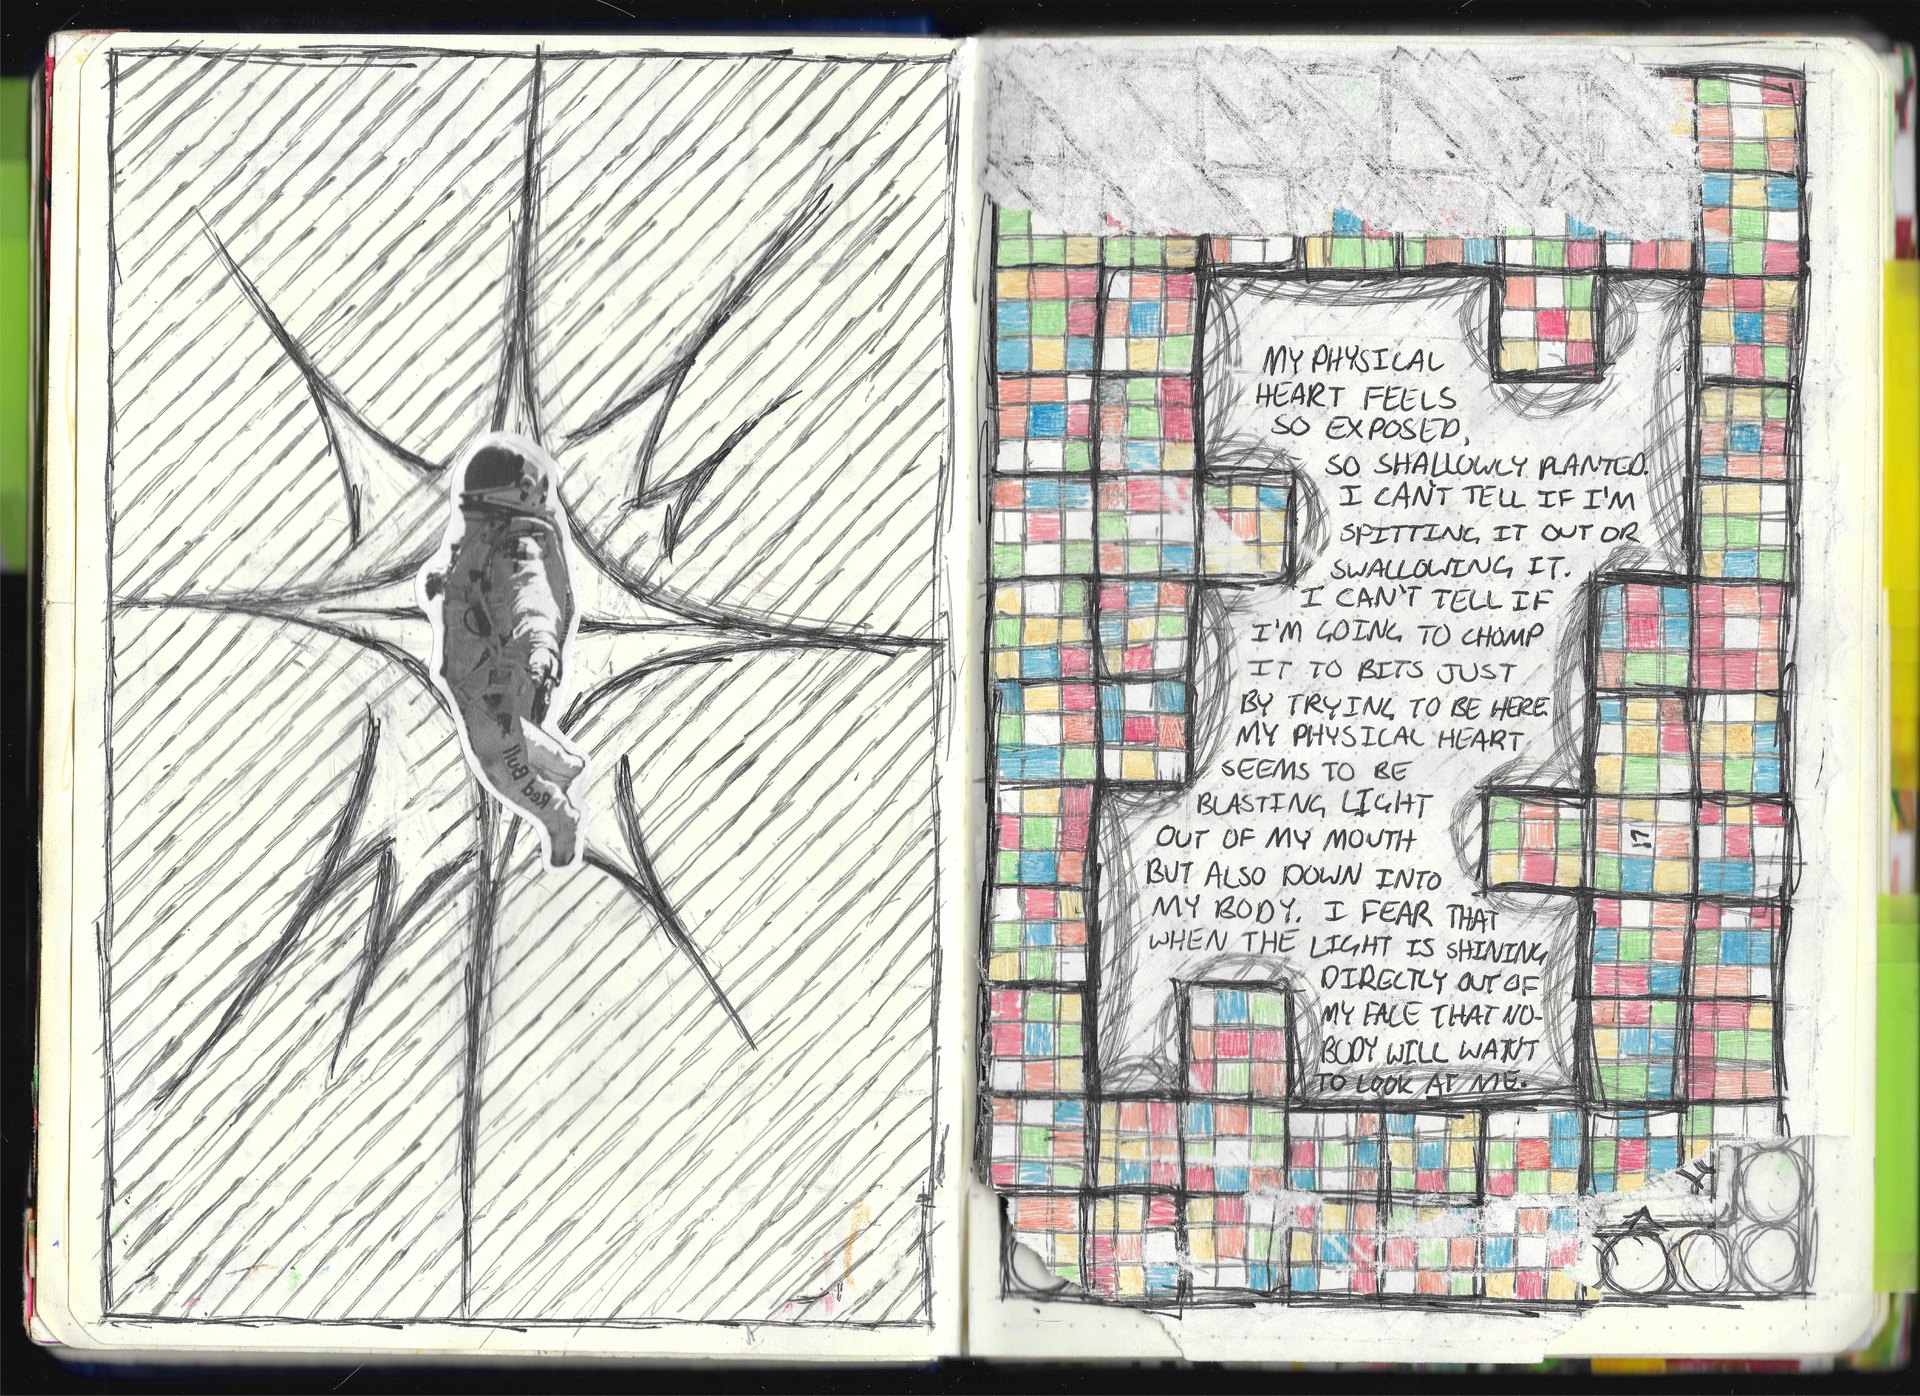 Red
Bull
MY PHYSICAL
HEART FEELS
SO EXPOSED,
SO SHALLOWLY PLANTED.
I CAN'T TELL IF I'M
SPITTING IT OUT OR
SWALLOWING IT.
I CAN'T TELL IF
I'M GOING TO CHOMP
IT TO BITS JUST
BY TRYING TO BE HERE.
MY PHYSICAL HEART
SEEMS TO BE
BLASTING LIGHT
OUT OF MY MOUTH
BUT ALSO DOWN INTO
MY BODY. I FEAR THAT
WHEN THE LIGHT IS SHINING
DIRECTLY OUT OF
MY FACE THAT NO-
BODY WILL WANT
TO LOOK AT ME.
17